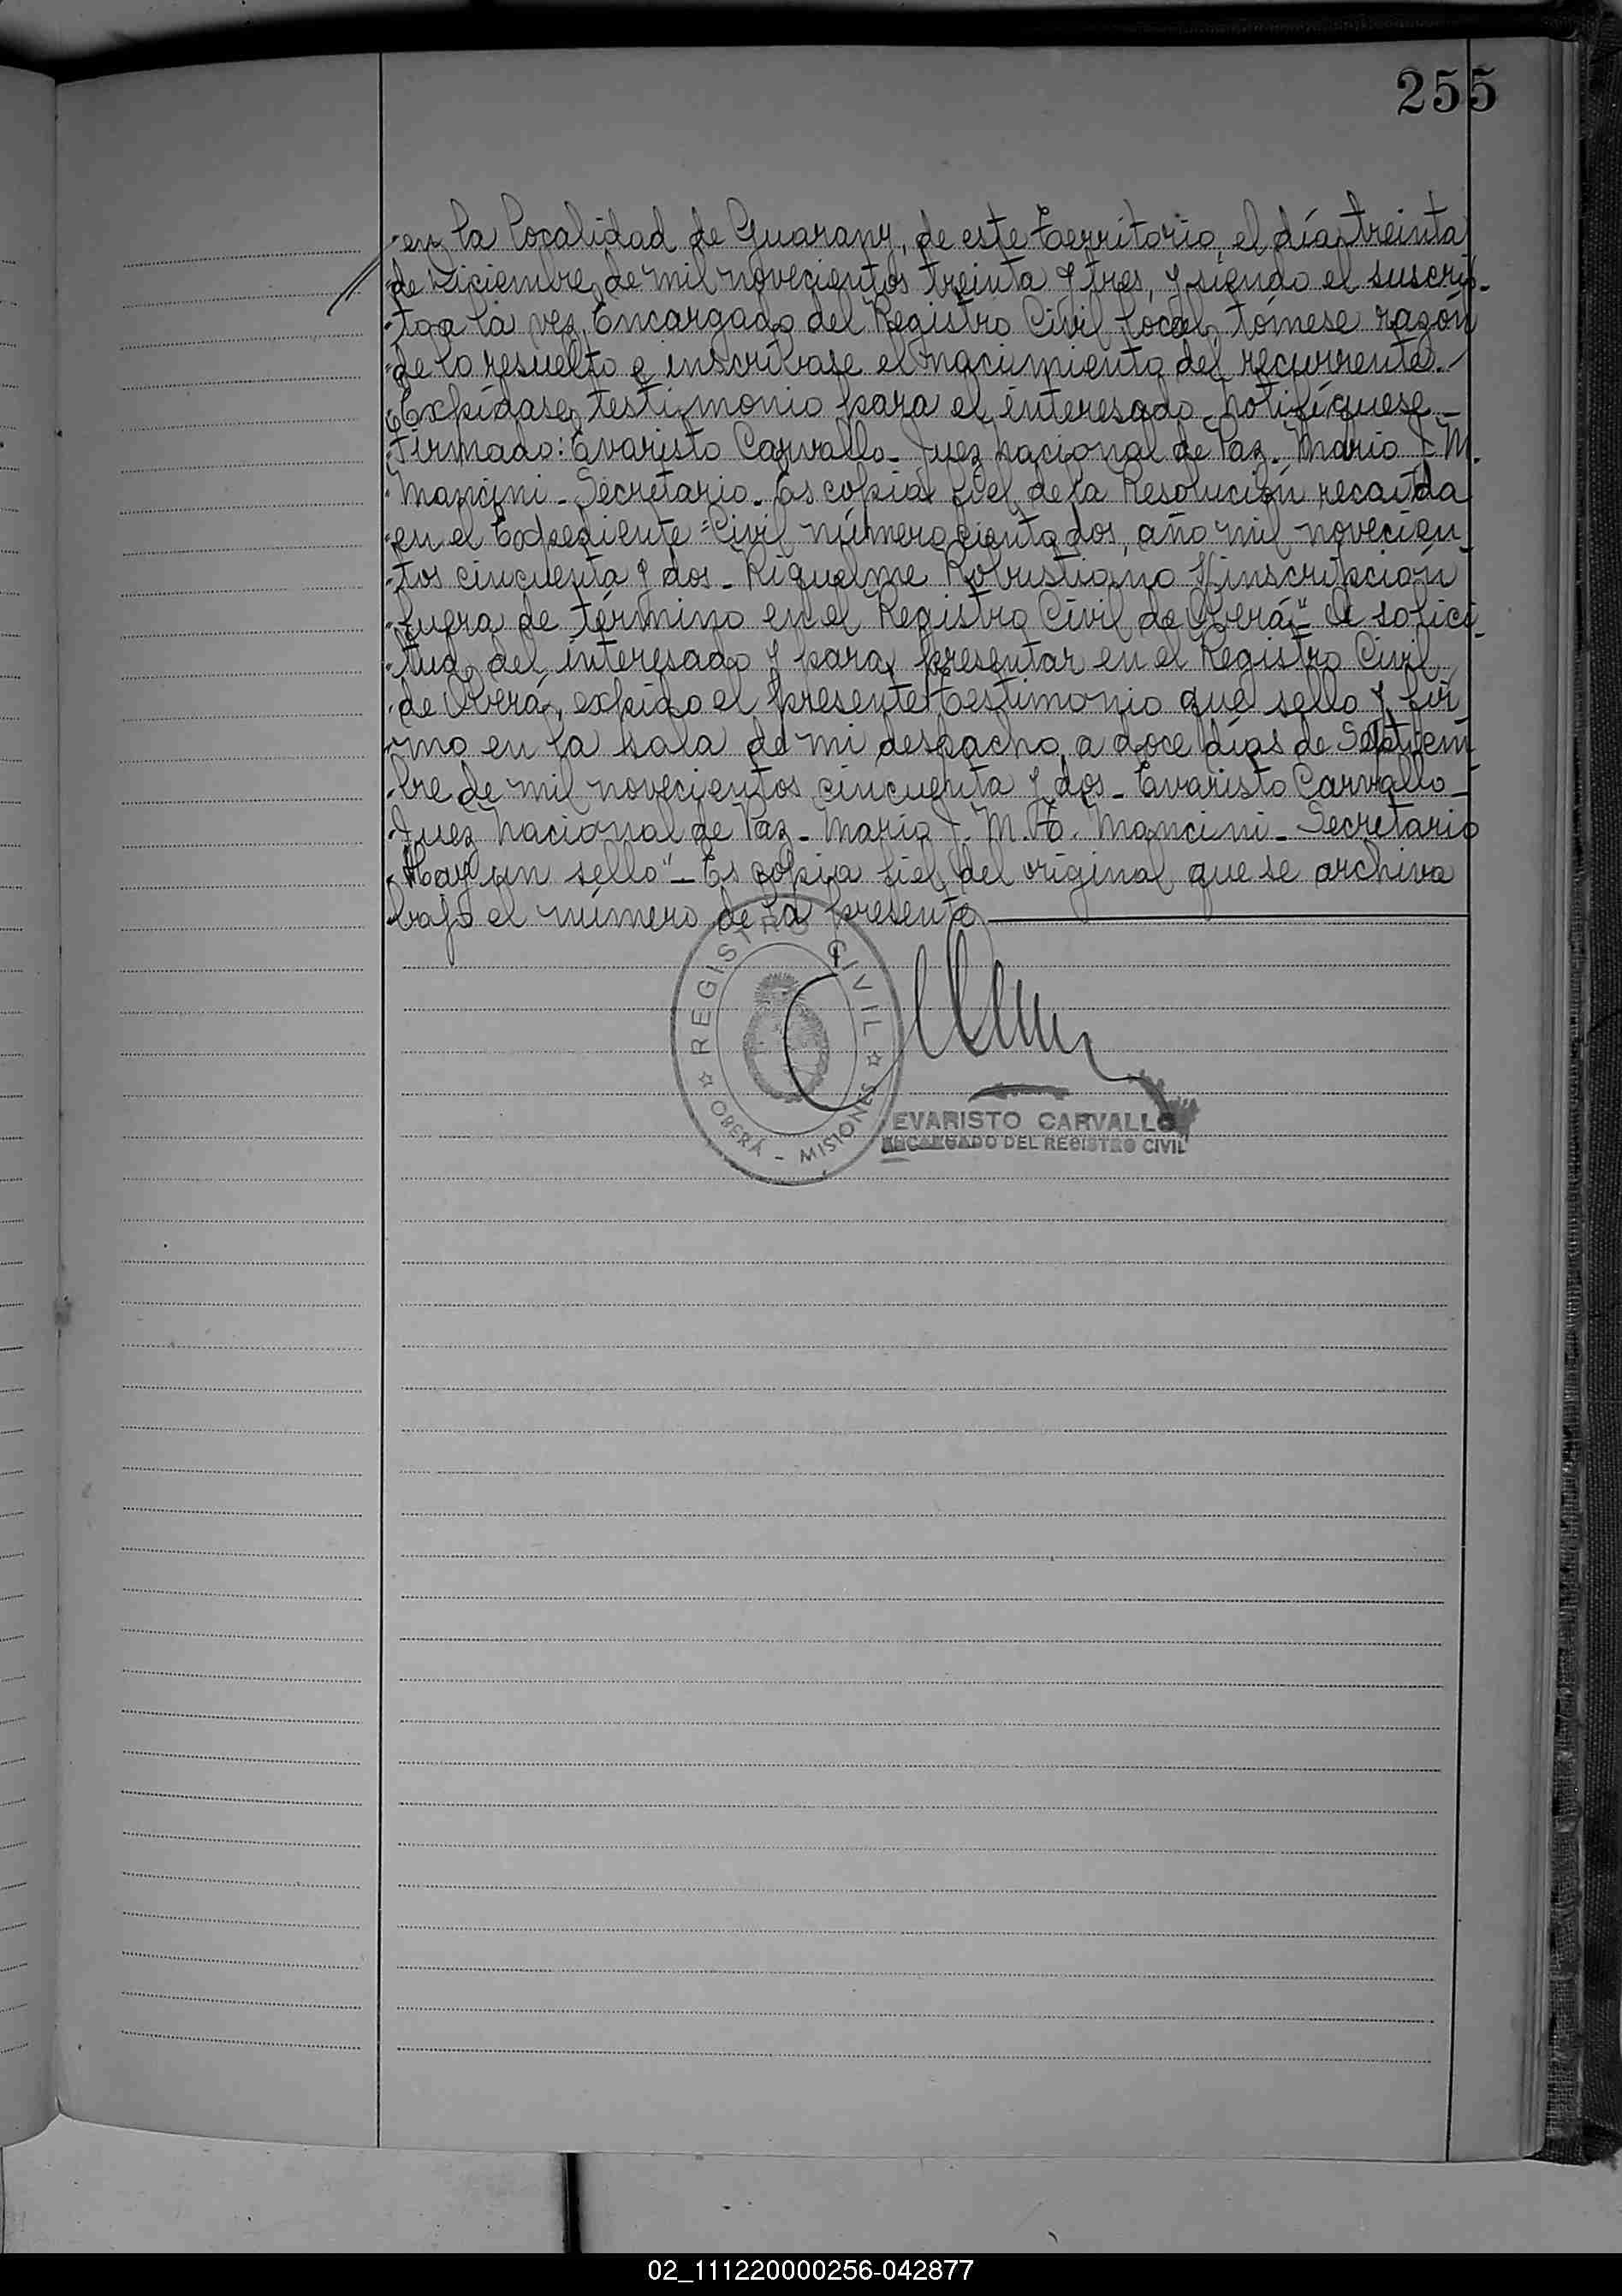 255
en la localidad de Guarany, de este territorio, el día treinta
de Diciembre de mil novecientos treinta y tres, y siendo el suscrip-
to a la vez Encargado del Registro Civil local, tómese razón
de lo resuelto e inscríbase el nacimiento del recurrente.-
Expídase testimonio para el interesado- notifíquese-
Firmado: Evaristo Carvallo- Juez Nacional de Paz- Mario J. M.
Mancini- Secretario- Es copia fiel de la Resolución recaída
en el Expediente "Civil número ciento dos, año mil novecien-
tos cincuenta y dos- Riquelme Robustiano s/inscripción
fuera de término en el Registro Civil de Oberá"- A solici-
tud del interesado y para presentar en el Registro Civil
de Oberá, expido el presente testimonio que sello y fir-
mo en la sala de mi despacho, a doce días de Septiem-
bre de mil novecientos cincuenta y dos- Evaristo Carvallo-
Juez Nacional de Paz- Mario J. M. Mancini- Secretario
Hay un sello"- Es copia fiel del original que se archiva
bajo el número de la presente
REGISTRO CIVIL
OBERÁ - MISIONES
EVARISTO CARVALLO
ENCARGADO DEL REGISTRO CIVIL
02_111220000256-042877